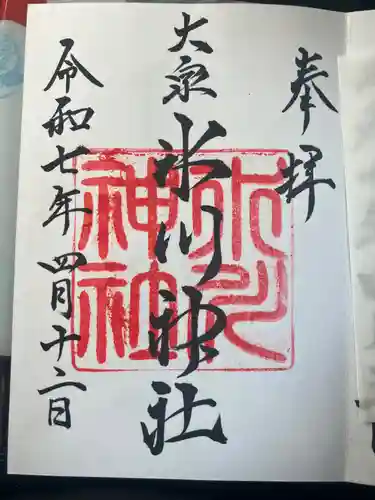 奉拝
大泉
氷川神社
氷川
神社
令和七年四月十二日